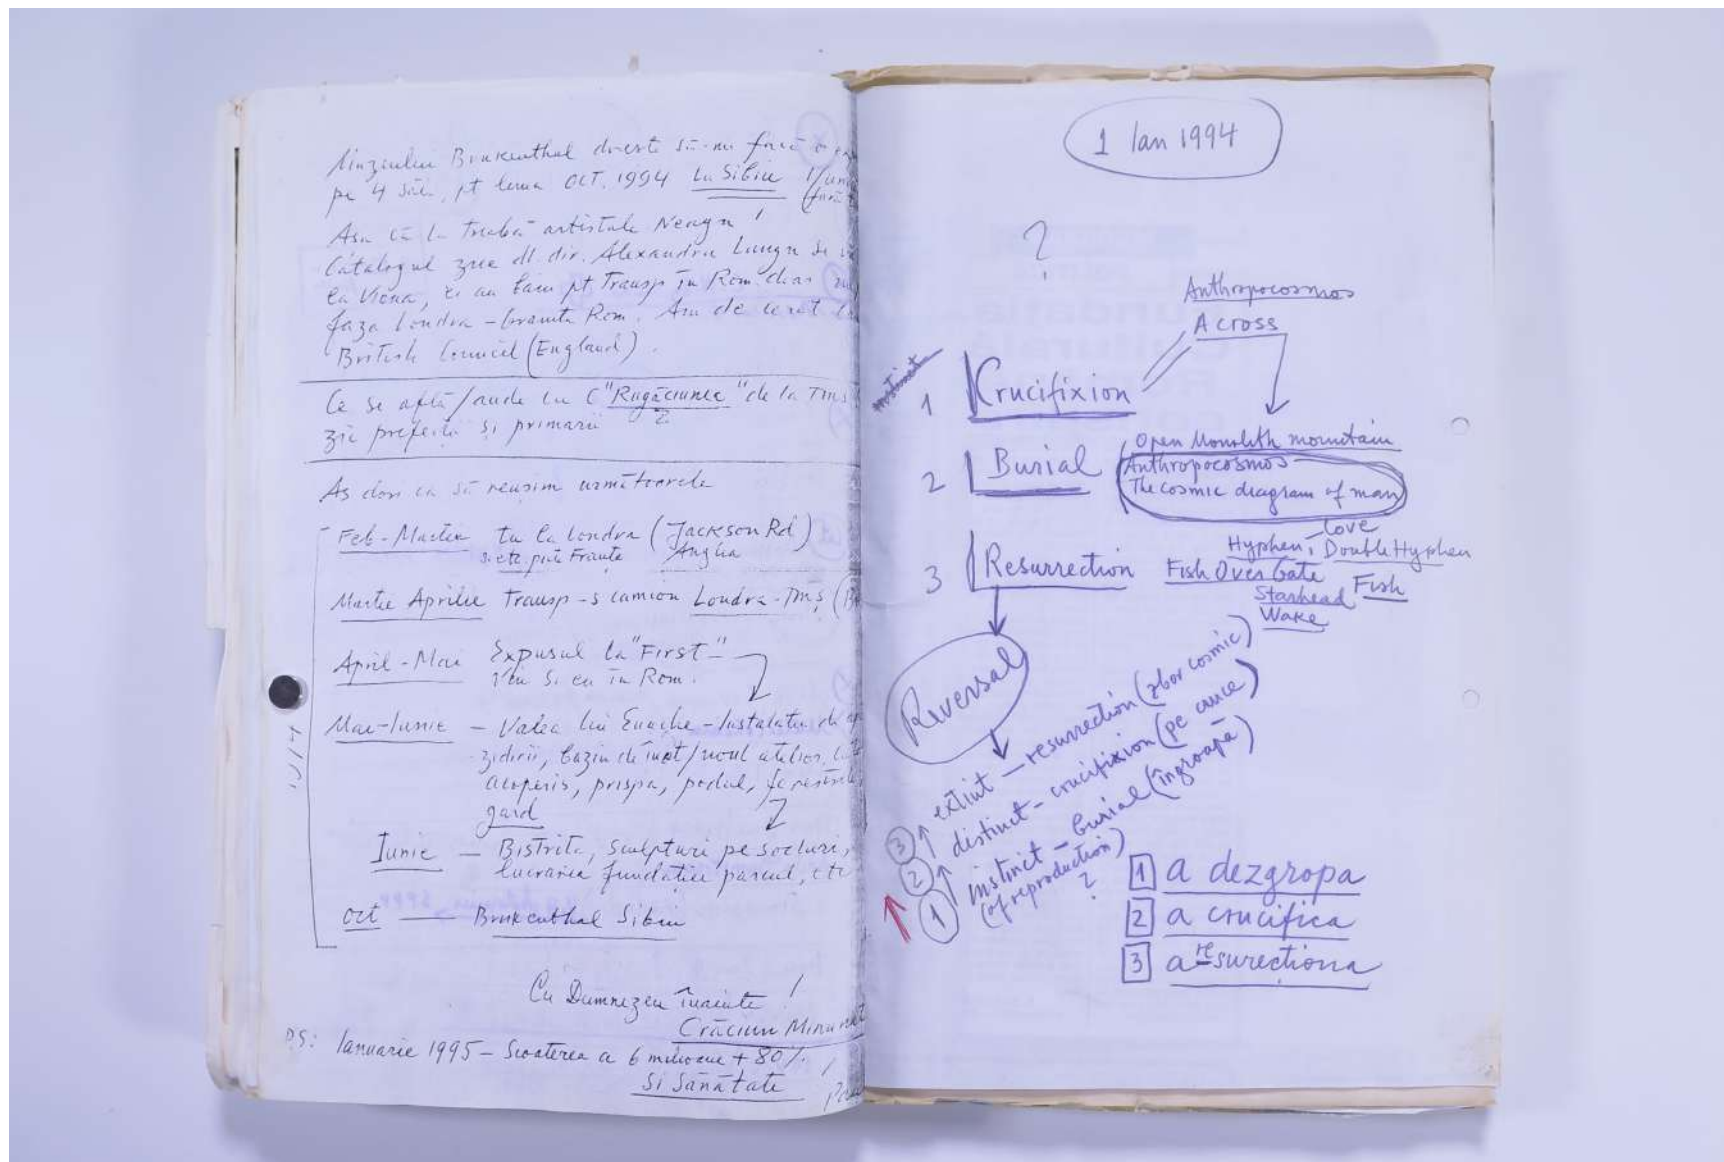 Muzeului Brukenthal doreste să-mi facă o
pe 4 săli, pt luna OCT. 1994 La Sibiu
Asa că la treabă artistule Neagu!
Catalogul zice dl dir. Alexandru Lungu se
la Viena, ei au bani pt Transp în Rom. doar
faza Londra - Granita Rom. Am de cerut
British Council (England).
Ce se află/aude cu C "Rugăciunea" de la TMS
zic prefectii si primarii ?
As dori ca să reusim următoarele
Feb - Martie tu la Londra (Jackson Rd)
si etc. prin Franta Anglia
Martie Aprilie Transp-s camion Londra - TMS
April - Mai Expusul la "First"
Tu si eu in Rom.
Mai - Iunie - Valea lui Enache - Instalatii de
zidirii, bazin de inot/noul atelier,
acoperis, prispa, podul,
gard
Iunie - Bistrita, Sculpturi pe socluri,
lucrarea fundatiei parcul, etc
Oct - Brukenthal Sibiu
Cu Dumnezeu înainte!
Crăciun Minunat
P.S: Ianuarie 1995 - Scoaterea a 6 milioane + 80%.
Si Sănătate !
1 Ian 1994
?
Anthropocosmos
Across
instinct
1 Crucifixion
Open Monolith mountain
2 Burial Anthropocosmos
The cosmic diagram of man
Love
Hyphen, Double Hyphen
3 Resurrection Fish Over Gate Fish
Starhead
Wake
Reversal
3 extint - resurrection (zbor cosmic)
2 distinct - crucifixion (pe cruce)
1 instinct - burial (îngroapă)
(of reproduction)
?
1 a dezgropa
2 a crucifica
3 a resurectiona